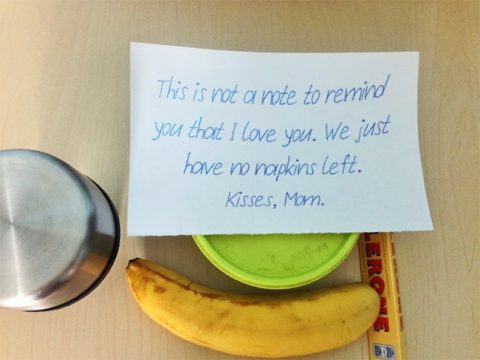 This is not a note to remind
you that I love you. We just
have no napkins left.
Kisses, Mom.
LERONE